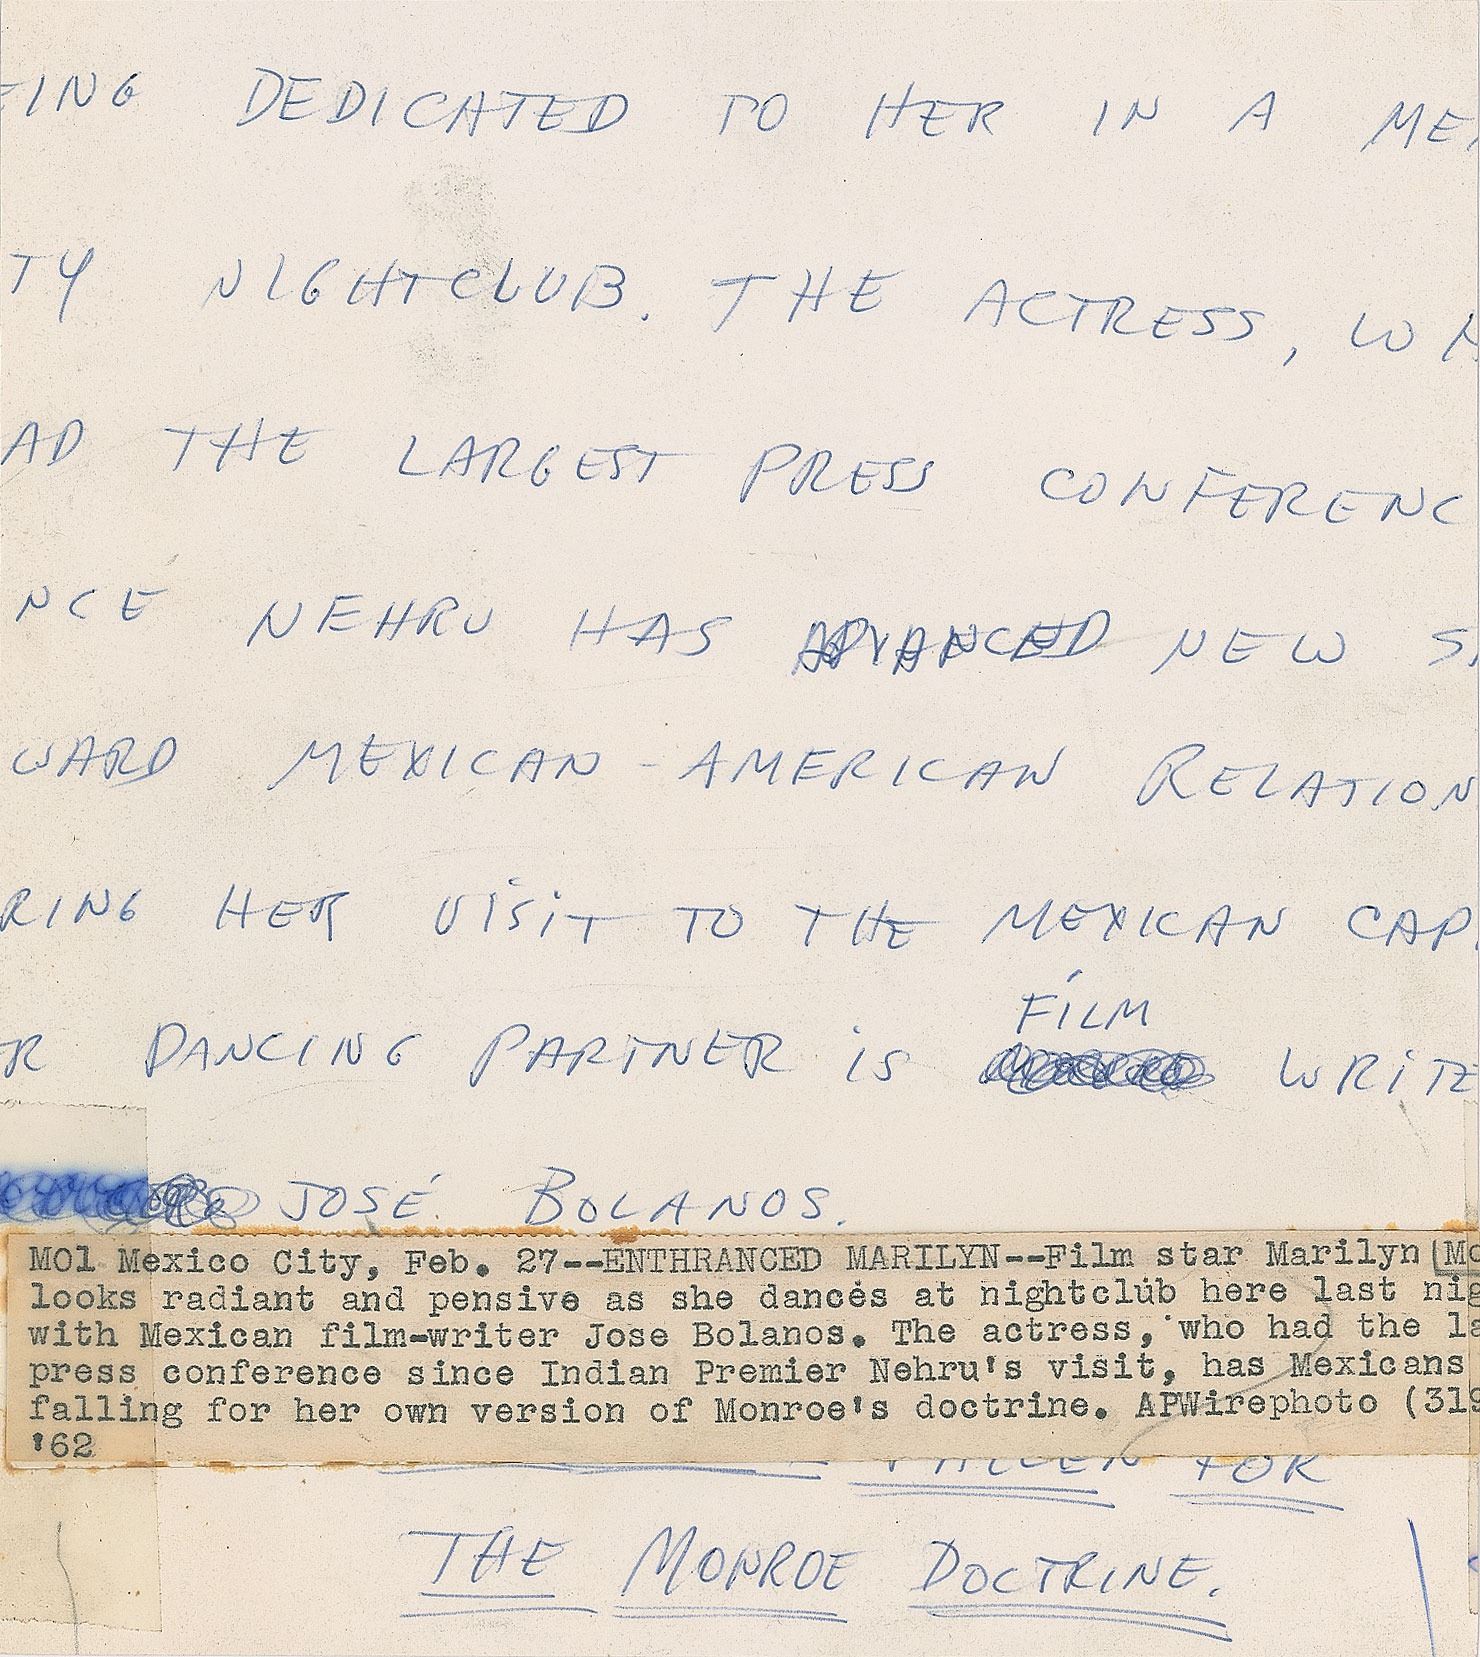 ING DEDICATED TO HER IN A ME
TY NIGHTCLUB. THE ACTRESS, WH
AD THE LARGEST PRESS CONFERENC
NCE NEHRU HAS ADVANCED NEW S
WARD MEXICAN-AMERICAN RELATION
RING HER VISIT TO THE MEXICAN CAP
FILM
R DANCING PARTNER IS WRITE
JOSÉ BOLANOS.
MO1 Mexico City, Feb. 27--ENTHRANCED MARILYN--Film star Marilyn Mo
looks radiant and pensive as she dances at nightclub here last nig
with Mexican film-writer Jose Bolanos. The actress, who had the la
press conference since Indian Premier Nehru's visit, has Mexicans
falling for her own version of Monroe's doctrine. APWirephoto (319
'62
FALLEN FOR
THE MONROE DOCTRINE.